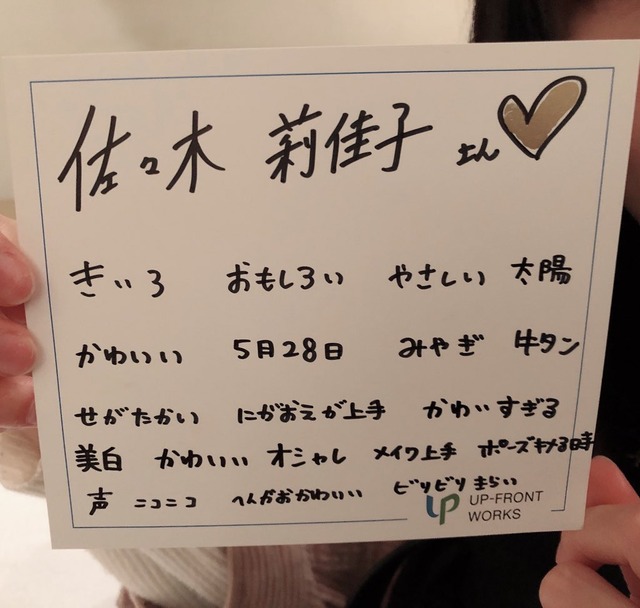 佐々木 莉佳子 さん
きいろ おもしろい やさしい 太陽
かわいい 5月28日 みやぎ 牛タン
せがたかい にがおえが上手 かわいすぎる
美白 かわいい オシャレ メイク上手 ポーズキメる時
声 ニコニコ へんがおかわいい ビリビリきらい
UP-FRONT
WORKS